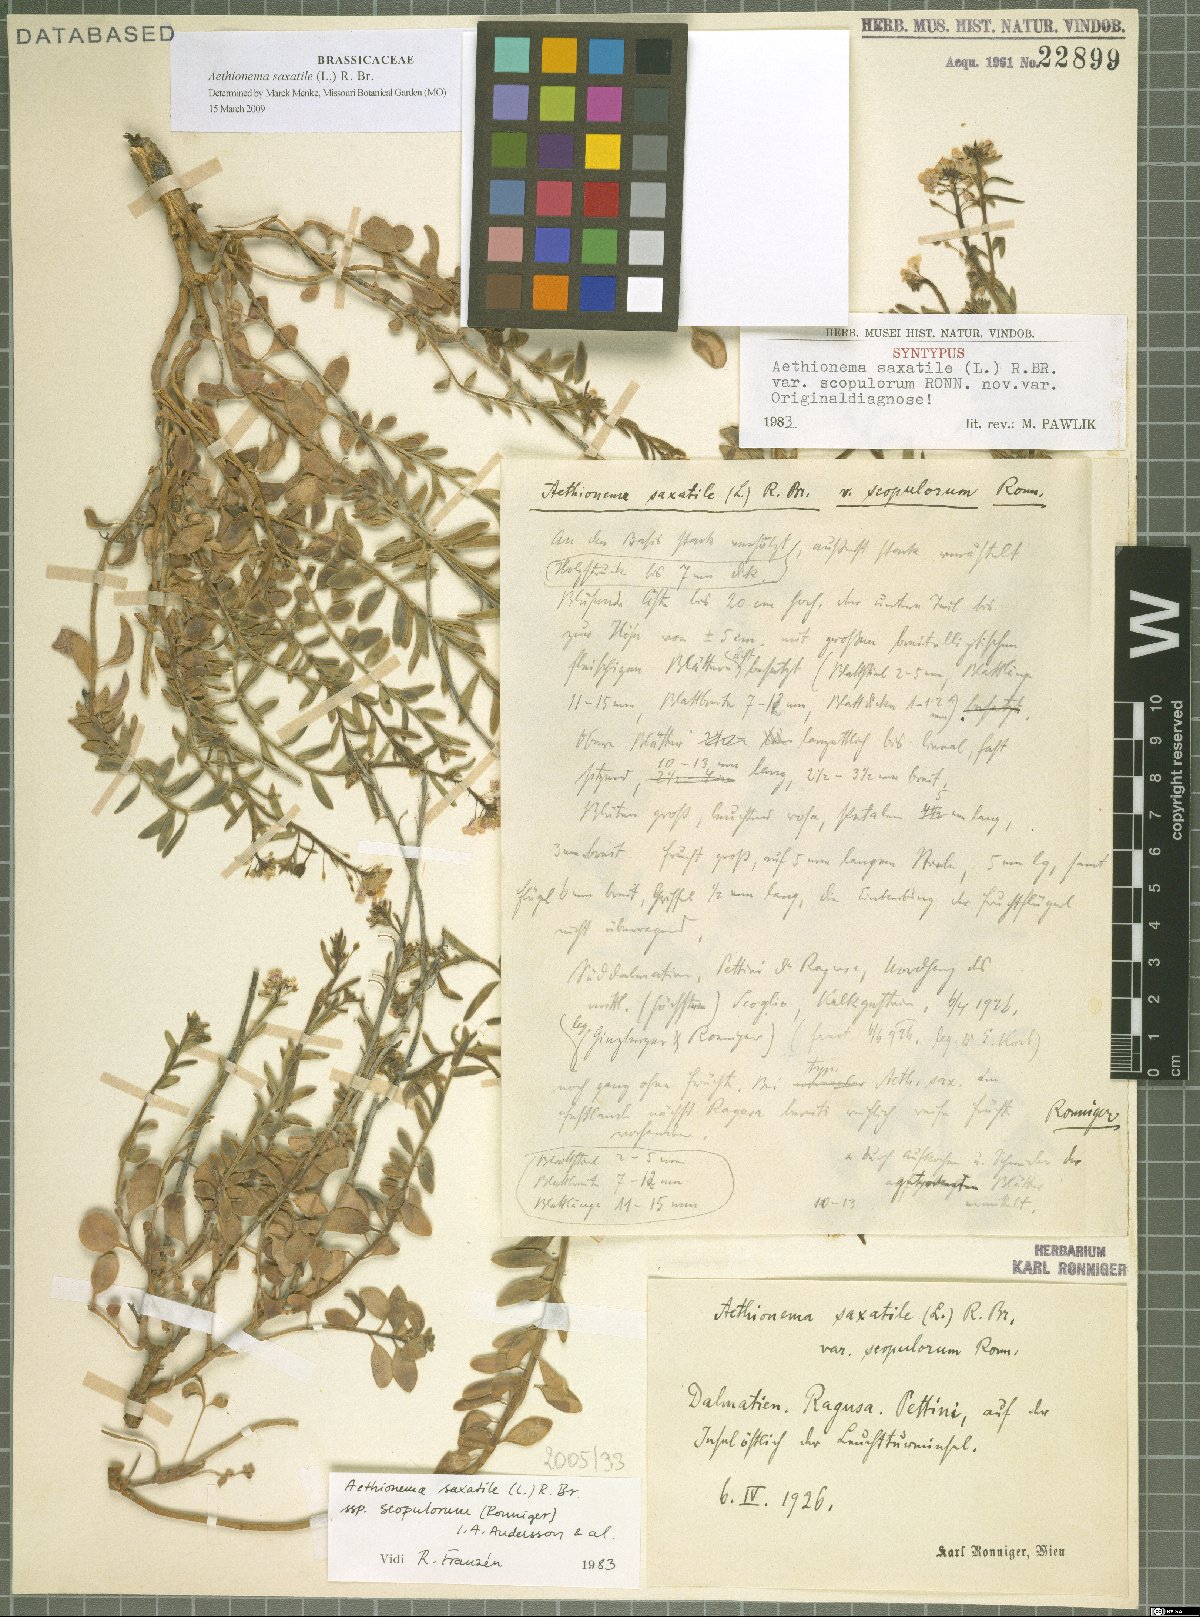 DATABASED
BRASSICACEAE
Aethionema saxatile (L.) R. Br.
Determined by Marek Menke, Missouri Botanical Garden (MO)
15 March 2009
HERB. MUS. HIST. NATUR. VINDOB.
Acqu. 1961 No. 22899
HERB. MUSEI HIST. NATUR. VINDOB.
SYNTYPUS
Aethionema saxatile (L.) R.BR.
var. scopulorum RONN. nov.var.
Originaldiagnose!
1983 lit. rev.: M. PAWLIK
Aethionema saxatile (L.) R. Br. v. scopulorum Ronn.
An der Basis stark verholzt, stark verästelt
bis 7 mm dick
Blühende bis 20 cm hoch, der untere Teil bis
zur Höhe von ± 5 cm mit großen breitelliptischen
fleischigen Blättern besetzt (Blattstiel 2-5 mm, Blattlänge
11-15 mm, Blattbreite 7-12 mm, Blattdicke
Obere Blätter lanzettlich bis lineal, fast
sitzend, 10-13 mm lang, 2½-3½ mm breit,
Blüten groß, leuchtend rosa, Petalen 5 mm lang,
3 mm breit. Frucht groß, auf 5 mm langem Stiele, 5 mm lg, samt
Flügel 6 mm breit, Griffel ½ mm lang, die Einkerbung der Fruchtflügel
nicht überragend,
Süddalmatien, Pettini di Ragusa, Nordhang des
mittl. (höchsten) Scoglio, Kalkgestein, 6/4 1926,
(leg. Ginzberger & Ronniger)
noch ganz ohne Frucht. Bei typ. Aeth. sax. am
Festlande nächst Ragusa bereits reichlich reife Frucht
vorhanden.
Ronniger
Blattstiel 2-5 mm
Blattbreite 7-12 mm
Blattlänge 11-15 mm
durch Aufkochen u. der
Blätter
10-13 ermittelt.
HERBARIUM
KARL RONNIGER
Aethionema saxatile (L.) R. Br.
var. scopulorum Ronn.
Dalmatien. Ragusa. Pettini, auf der
Insel östlich der Leuchtturminsel.
6. IV. 1926.
Karl Ronniger, Wien
2005/33
Aethionema saxatile (L.) R. Br.
ssp. scopulorum (Ronniger)
I.A. Andersson & al.
Vidi R. Franzén 1983
W
0 1 2 3 4 5 6 7 8 9 10
cm
copyright reserved